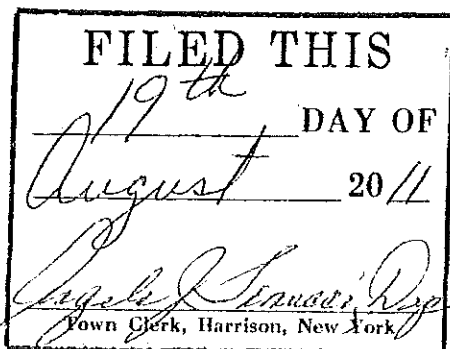 FILED THIS
19th DAY OF
August 2011
Angelo J.
Town Clerk, Harrison, New York